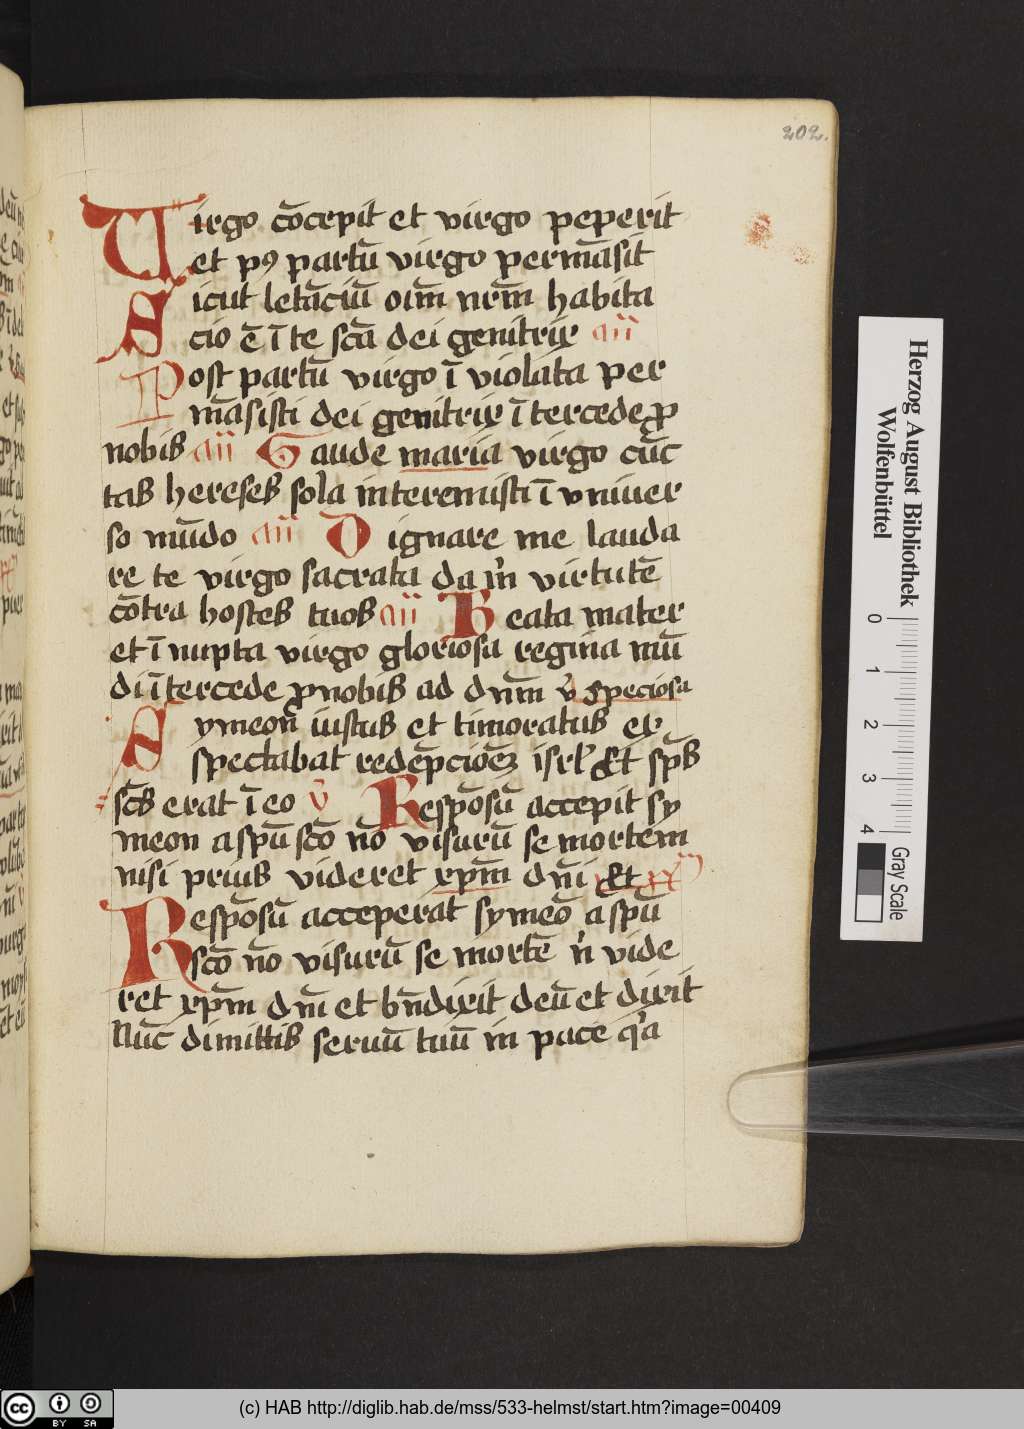 202.
Virgo cōcepit et virgo peperit
et pꝯ partū virgo permāsit
Sicut letāciū oīm nr̄m habita
cio ē ī te scā dei genitrix an̄
Post partū virgo ī violata per
māsisti dei genitrix ī tercede ꝓ
nobis an̄ Gaude maria virgo cūc
tas hereses sola interemisti ī vniuer
so mūdo an̄ Dignare me lauda
re te virgo sacrata da m̄ virtutē
cōtra hostes tuos an̄ Beata mater
et ī nupta virgo gloriosa regina mū
di ī tercede ꝓ nobis ad dn̄m v̄ Speciosa
Symeon iustus et timoratus ex
spectabat redēpcionē isrl' Et sp̄s
sc̄s erat ī eo v̄ Respōsū accepit sy
meon a spū scō nō visurū se mortem
nisi prius videret xp̄m dn̄i Et
Respōsū acceperat symeō a spū
scō nō visurū se mortē n̄ vide
ret xp̄m dn̄i et bn̄dixit deū et dixit
Nūc dimittis seruū tuū in pace q'a
Herzog August Bibliothek
Wolfenbüttel
0 1 2 3 4
Gray Scale
cc BY SA
(c) HAB http://diglib.hab.de/mss/533-helmst/start.htm?image=00409